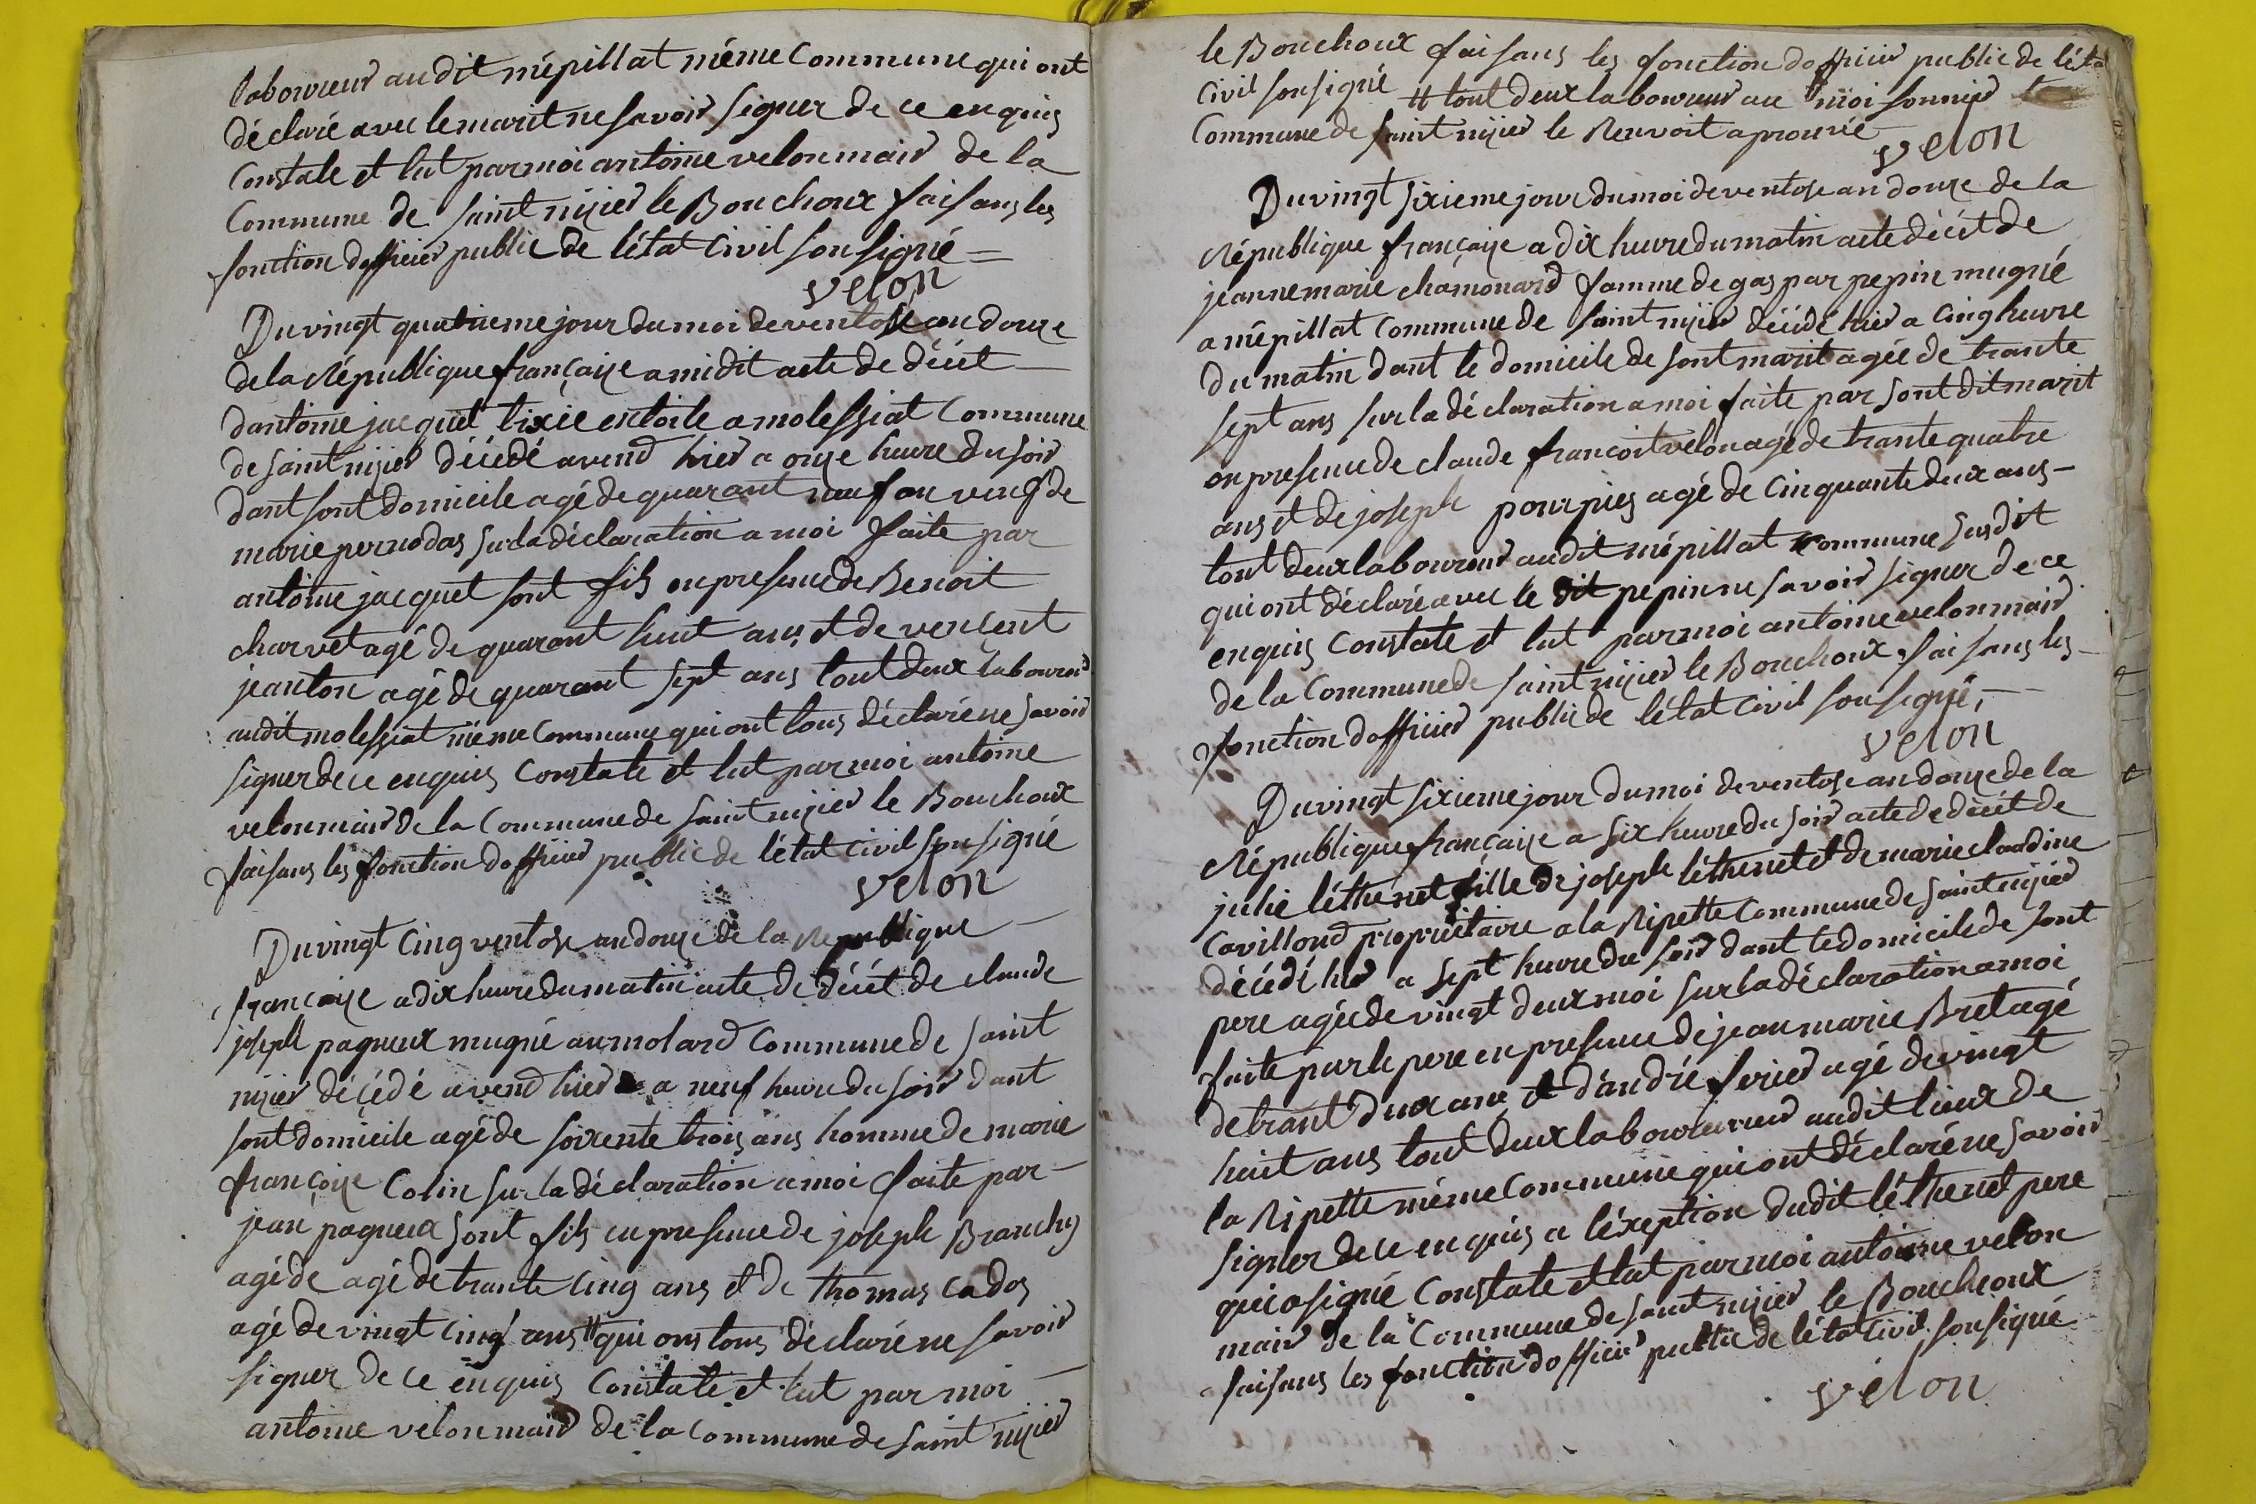 laboureur audit mépillat méme Commune qui ont
déclaré avec le marit ne savoir signer de ce enquis
Constate et lut par moi antoine velon mair de la
Commune de saint nizier le Bouchoux faisans les
fonction dofficier public de létat Civil sousigné =
velon
Du vingt quatrieme jour du moi de ventose an douze
de la République françaize a midit acte de décét —
dantoine jacquet tixie en toile a molessiat Commune
de saint nizier décédé avend hier a onze heure du soir
dant sont domicile agé de quarant neuf an veuf de
marie pernodas sur la déclaration a moi faite par
antoine jacquet sont fils en presence de Benoit
charvet agé de quarant huit ans et de vencent
jeanton agé de quarant sept ans tout deux laboureur
audit molessiat méme Commune qui ont tous déclaré ne savoir
signer de ce enquis Constate et lut par moi antoine
velon mair de la Commune de saint nizier le Bouchoux
faisans les fonction dofficier public de létat Civil sousigné
velon
Du vingt Cinq ventose an douze de la République —
françaize a dix heure du matin acte de décét de claude
joseph pagneux mugnié au molard Commune de saint
nizier décédé avend hier a neuf heure du soir dant
sont domicile agé de soixente trois ans homme de marie
françoize Colin sur la déclaration a moi faite par —
jean pagneux sont fils en presence de joseph Branchy
agé de agé de trante Cinq ans et de thomas Cados
agé de vingt Cinq ans # qui ons tous déclaré ne savoir
signer de ce enquis Constate et lut par moi —
antoine velon mair de la Commune de saint nizier
le Bouchoux faisans les fonction dofficier public de léta
Civil sousigné # tout deux laboureur au moi sonnier
Commune de saint nizier le Renvoit aprouvé
velon
Du vingt sixieme jour du moi de ventose an douze de la
République françaize a dix heure du matin acte décét de
jeanne marie chamonard famme de gaspar pepin mugnié
a mépillat Commune de saint nizier décédé hier a Cinq heure
du matin dant le domicile de sont marit agée de trante
sept ans sur la déclaration a moi faite par sont dit marit
en presence de claude francoit velon agé de trante quatre
ans et de joseph pourpies agé de Cinquante deux ans —
tout deux laboureur audit mépillat Commune susdit
qui ont déclaré avec le dit pepin ne savoir signer de ce
enquis Constate et lut par moi antoine velon mair
de la Commune de saint nizier le Bouchoux faisans les —
fonction dofficier public de létat Civil sousigné, —
velon
Du vingt sixieme jour du moi de ventose an douze de la
République françaize a six heure du soir acte de décét de
julie léthenet fille de joseph léthenet et de marie claudine
Cavillond propriétaire a la Ripette Commune de saint nizier
décédé hier a sept heure du soir dant le domicile de sont
pere agée de vingt deux moi sur la déclaration a moi
faite par le pere en presence de jean marie Bret agé
de trant deux ans et dandré ferier agé de vingt
huit ans tout deux laboureur audit lieux de
la Ripette méme Commune qui ont déclaré ne savoir
signer de ce enquis a léxeption dudit léthenet pere
qui a signé Constate et lut par moi antoine velon
mair de la Commune de saint nizier le Boucheoux
faisans les fonction dofficier public de létat Civil sousigné
velon